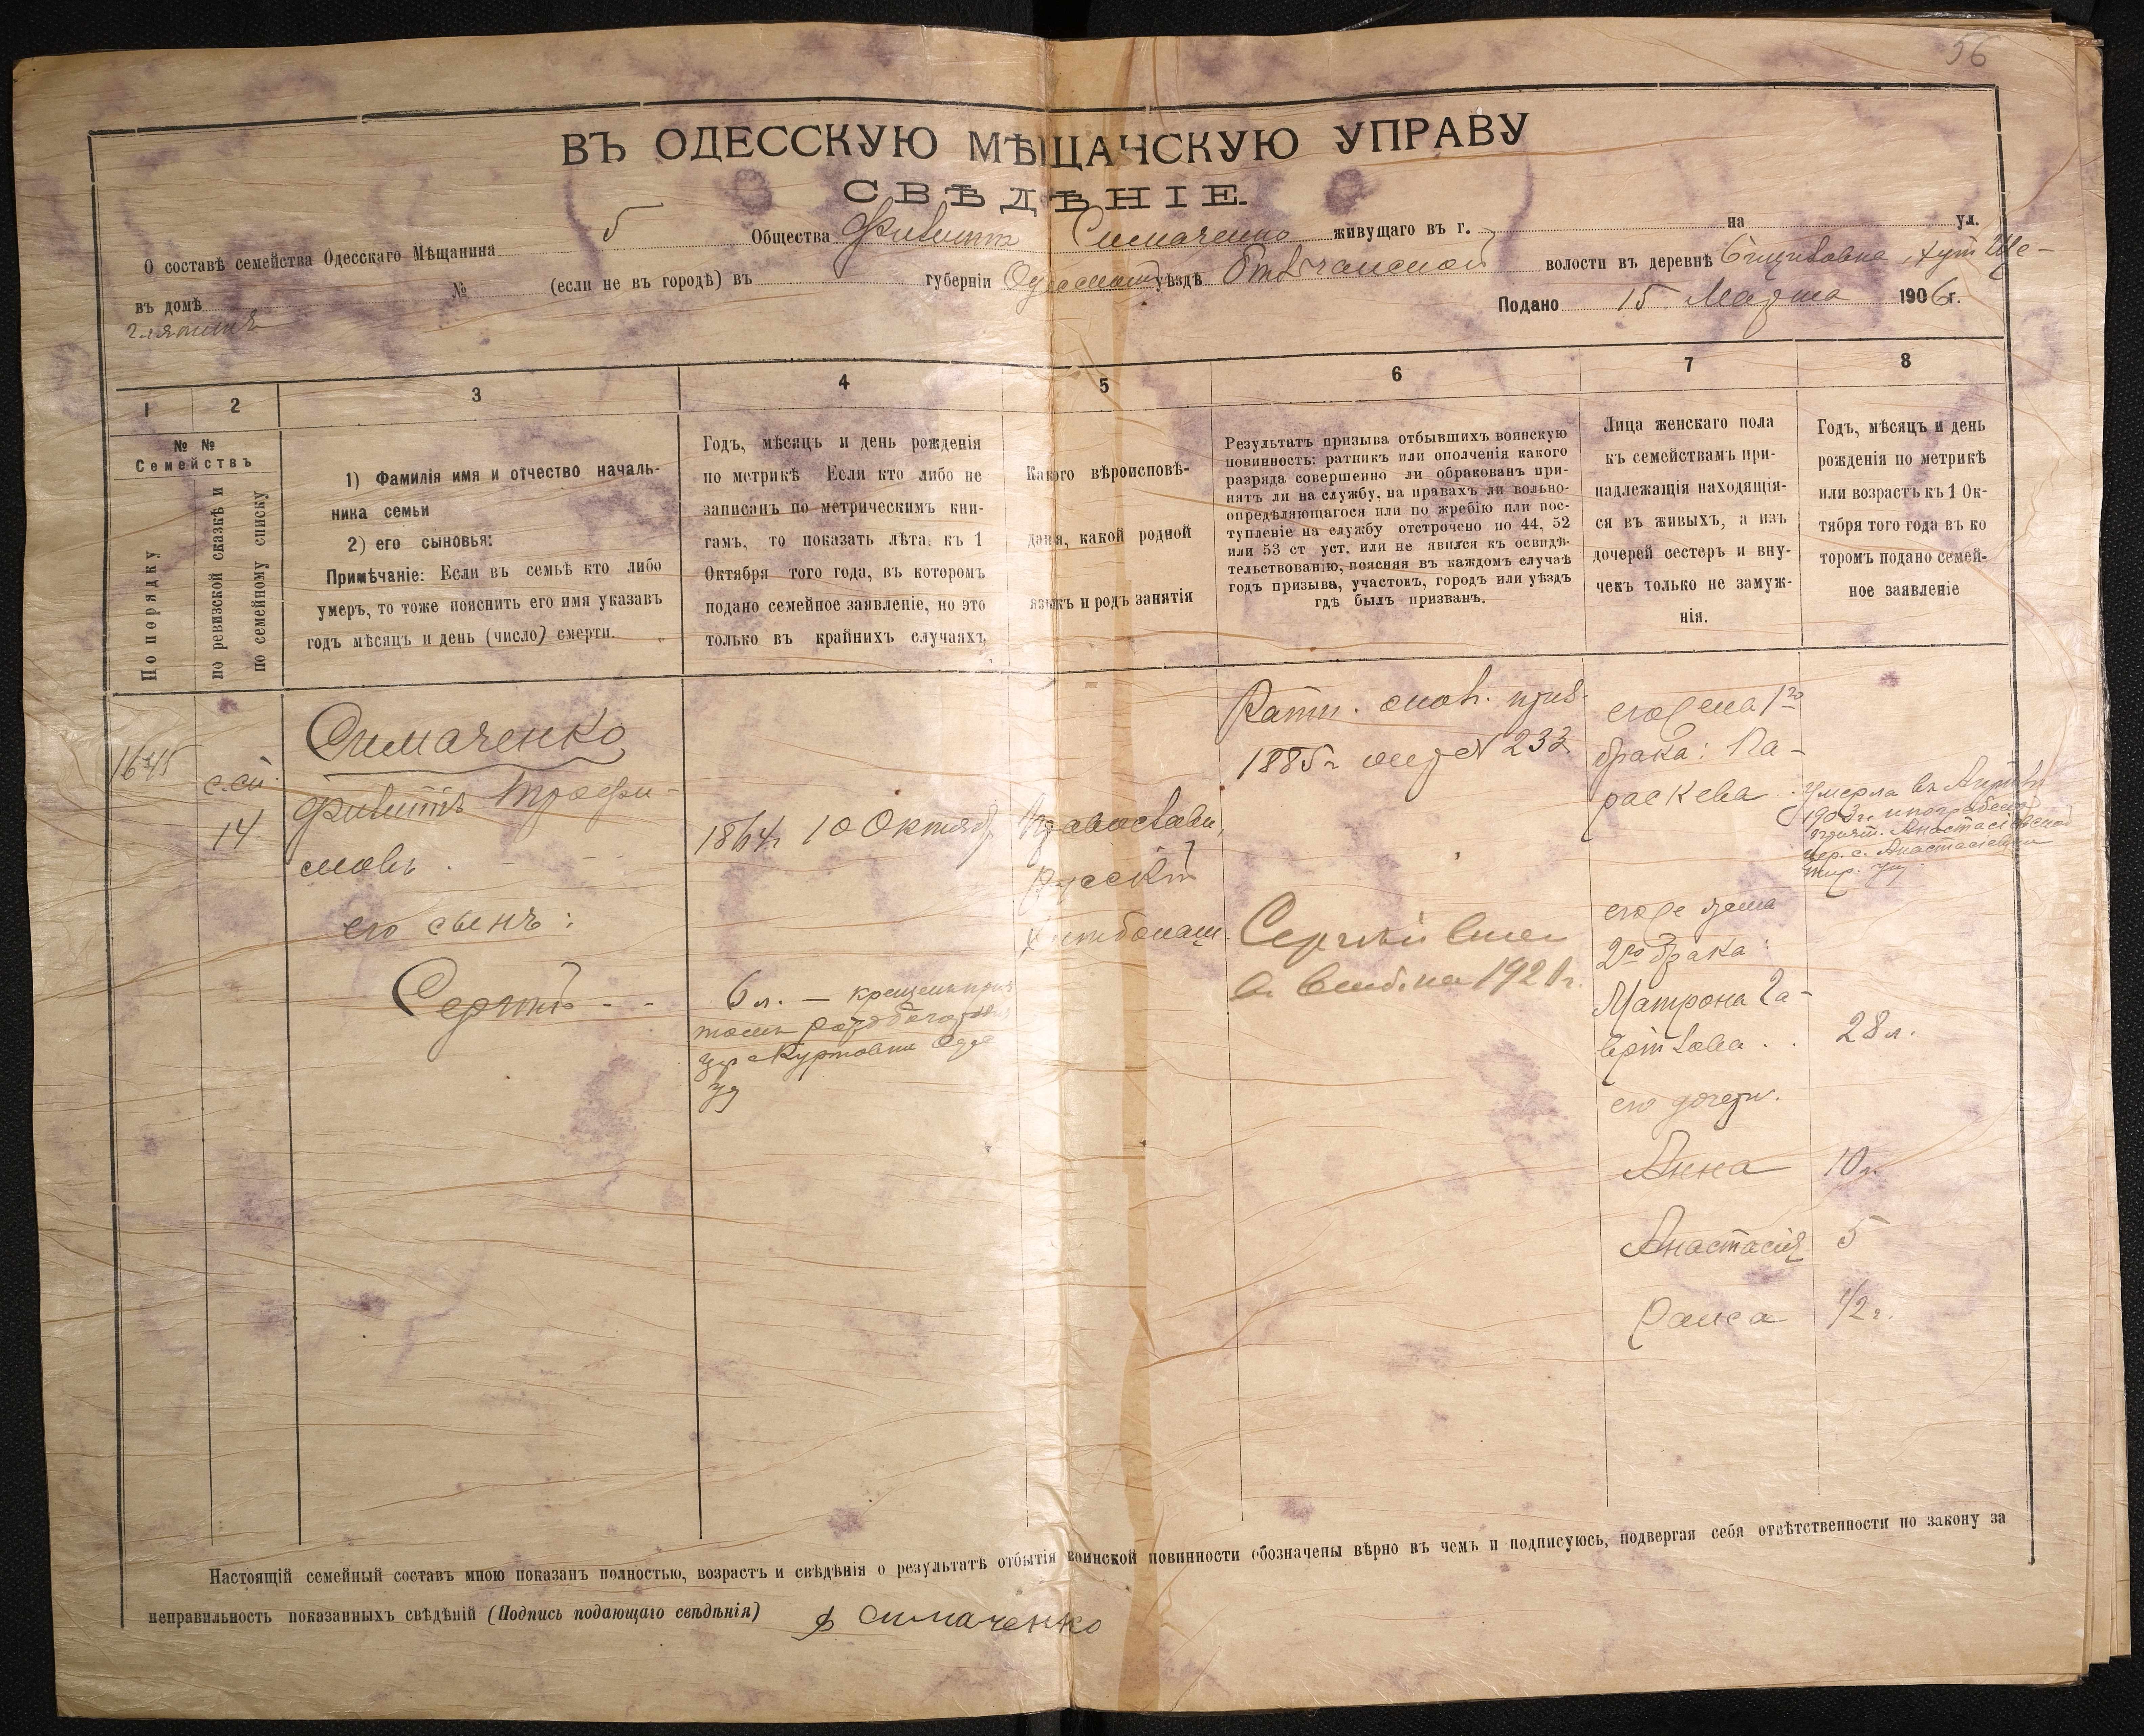 56
ВЪ ОДЕССКУЮ МѢЩАНСКУЮ УПРАВУ
СВѢДѢНІЕ.
О составѣ семейства Одесскаго Мѣщанина 5 Общества Филиппъ Симаченко живущаго въ г. на ул.
въ домѣ № (если не въ городѣ) въ губерніи уѣздѣ волости въ деревнѣ хут. Ще-
Подано 15 Марта 1906 г.
1 2 3 4 5 6 7 8
№ №
Семействъ
По порядку
по ревизской сказкѣ и
по семейному списку
1) Фамилія имя и отчество началь-
ника семьи
2) его сыновья:
Примѣчаніе: Если въ семьѣ кто либо
умеръ, то тоже пояснить его имя указавъ
годъ мѣсяцъ и день (число) смерти.
Годъ, мѣсяцъ и день рожденія
по метрикѣ Если кто либо не
записанъ по метрическимъ кни-
гамъ, то показать лѣта, къ 1
Октября того года, въ которомъ
подано семейное заявленіе, но это
только въ крайнихъ случаяхъ,
Какого вѣроисповѣ-
данія, какой родной
языкъ и родъ занятія
Результатъ призыва отбывшихъ воинскую
повинность: ратникъ или ополченія какого
разряда совершенно ли обракованъ при-
нятъ ли на службу, на правахъ ли вольно-
опредѣляющагося или по жребію или пос-
тупленіе на службу отстрочено по 44, 52
или 53 ст уст. или не явился къ освидѣ-
тельствованію, поясняя въ каждомъ случаѣ
годъ призыва, участокъ, городъ или уѣздъ
гдѣ былъ призванъ.
Лица женскаго пола
къ семействамъ при-
надлежащія находящія-
ся въ живыхъ, а изъ
дочерей сестеръ и вну-
чекъ только не замуж-
нія.
Годъ, мѣсяцъ и день
рожденія по метрикѣ
или возрастъ къ 1 Ок-
тября того года въ ко
торомъ подано семей-
ное заявленіе
1645
с.сп.
14.
Симаченко
Филиппъ Трофи-
мовъ
его сынъ:
Сергѣй
1864 г 10 Октябр
6 л. — крещенъ
Одес
уѣ
Православн,
Русскій
Хлѣбопаш.
Ратн. 
1885 г № 233
Сергѣй
1921 г.
его жена 1го
брака: Па-
раскева
Умерла въ Апрѣлѣ
1903 г. и погребена
Анастасіевской
цер. с. Анастасіевки
Тир. уѣ
его же жена
2го брака:
Матрона Га-
вріилова 28 л.
его дочери.
Анна 10 л.
Анастасія 5
Раиса 1/2 г.
Настоящій семейный составъ мною показанъ полностью, возрастъ и свѣдѣнія о результатѣ отбытія воинской повинности обозначены вѣрно въ чемъ и подписуюсь, подвергая себя отвѣтственности по закону за
неправильность показанныхъ свѣдѣній (Подпись подающаго свѣдѣнія) Ф Симаченко